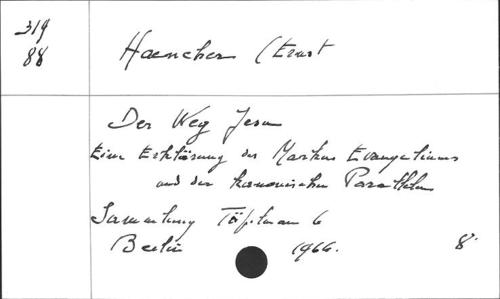 319
88
Haenchen (Ernst
Der Weg Jesu
Eine Erklärung des Markus Evangeliums
und der kanonischen Parallelen
Sammlung Töpelmann 6
Berlin 1966. 8°